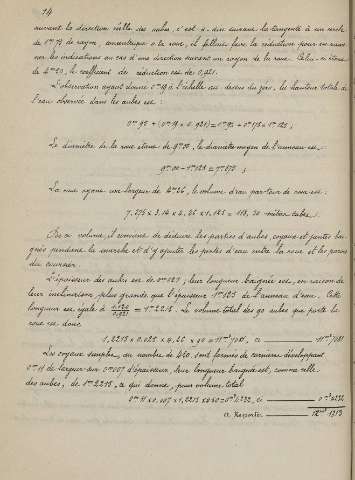 14
suivant la direction réelle des aubes, c'est à dire suivant la tangente à un cercle
de de rayon, concentrique à la roue, il fallait faire la réduction pour en rame-
ner les indications au cas d'une direction suivant un rayon de la roue. Celui-ci étant
de 4m20, le coefficient de réduction est de 0,921.
L'observation ayant donné 0m19 à l'échelle au dessus du zéro, la hauteur totale de
l'eau observée dans les aubes est:
0m95 + (0m19 x 0.921) = 0m95 + 0m175 = 1m125;
Le diamètre de la roue étant de 9m00, le diamètre moyen de l'anneau est:
9m00 - 1m125 = 7m875;
La roue ayant une largeur de 4m26, le volume d'eau par tour de roue est:
7,875 x 3.14 x 4,26 x 1.125 = 118, mètres cubes.
De ce volume, il convient de déduire les parties d'aubes, coyaux et jantes bai-
gnés pendant la marche et d'y ajouter les pertes d'eau entre la roue et les parois
du coursier.
L'épaisseur des aubes est de 0m025; leur longueur baignée est, en raison de
leur inclinaison, plus grande que l'épaisseur 1m125 de l'anneau d'eau. Cette
longueur est égale à 1.125/0.921 = 1m2215. Le volume total des 90 aubes que porte la
roue est donc
1,2215 x 0.025 x 4,26 x 90 = 11m3 7081, ci 11m3 7081
Les coyaux simples, au nombre de 450, sont formés de cornière développant
0m11 de largeur sur 0m007 d'épaisseur, leur longueur baignée est, comme celle
des aubes, de 1m2215, ce qui donne, pour volume total
0m11 x 0,007 x 1,2215 x 450 = 0m3 4232, ci 0m3 4232
A Reporter 12m3 1313